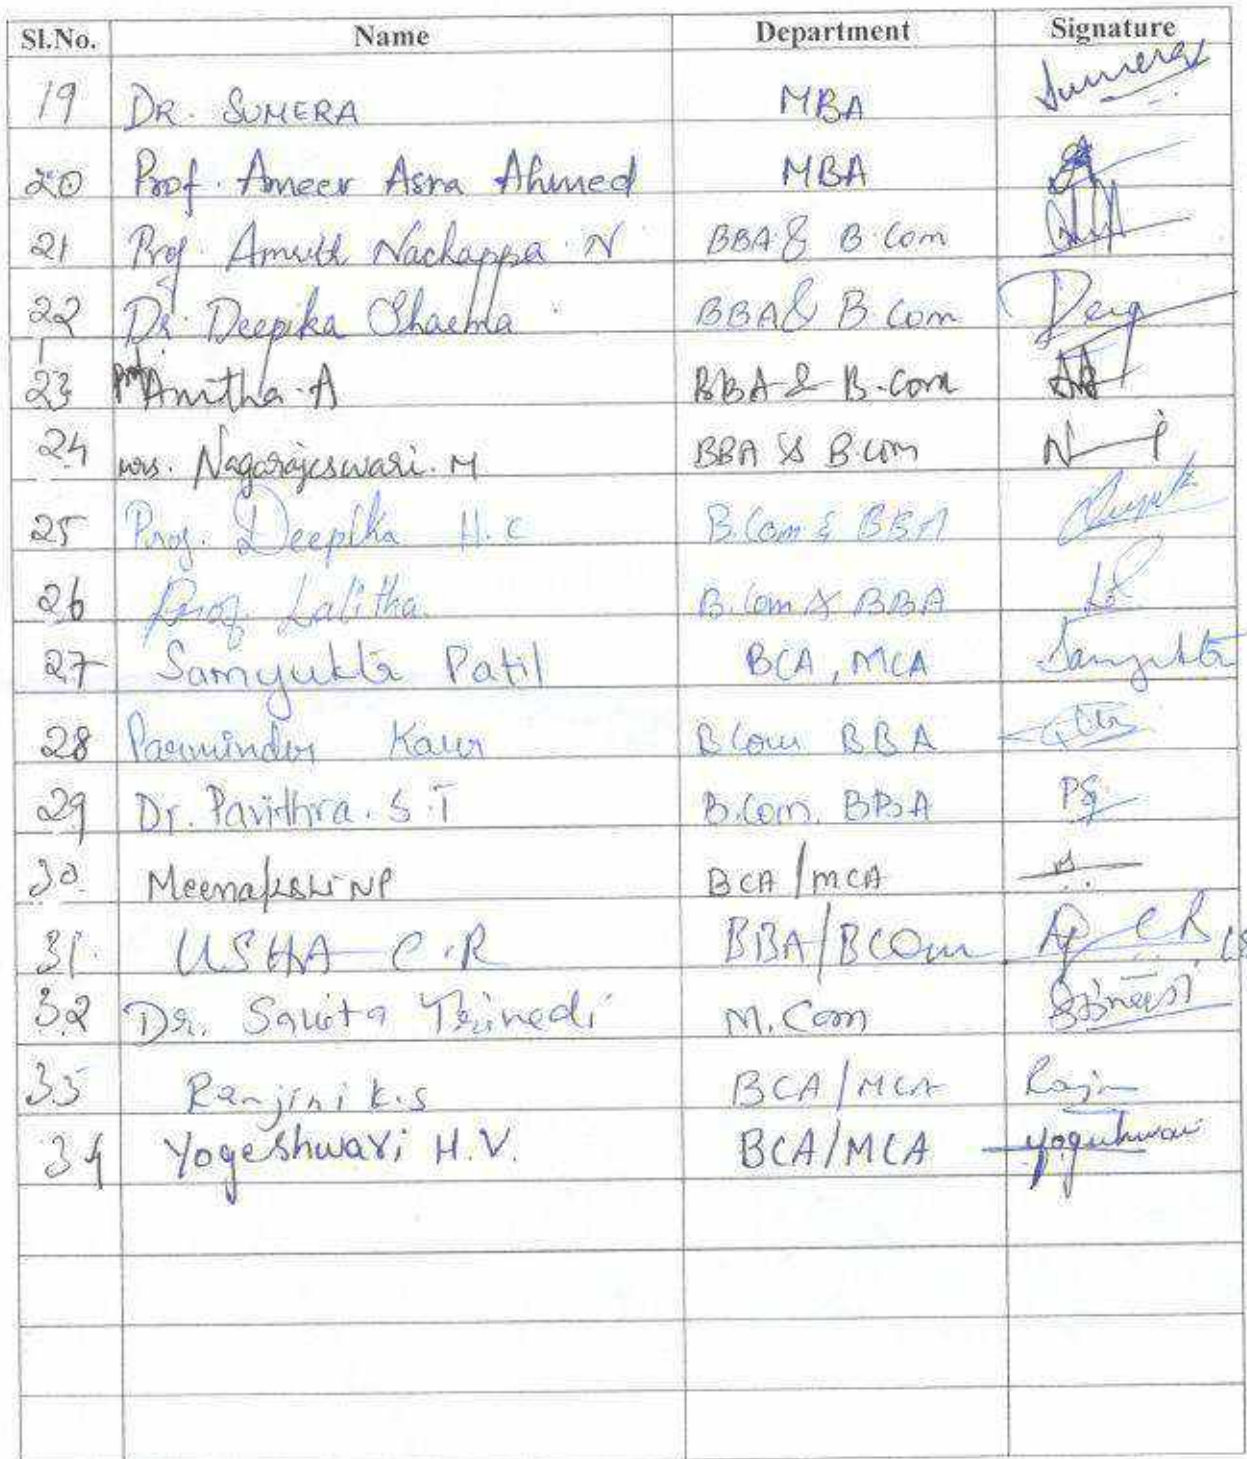 Sl.No. Name Department Signature
19 DR. SUMERA MBA Sumera
20 Prof. Ameer Asra Ahmed MBA
21 Prof. Amruth Nachappa N BBA & B.Com
22 Dr. Deepika Sharma BBA & B.Com Deep
23 Prof Anitha A BBA & B.Com
24 Mrs. Nagarajeswari. M BBA & B.Com
25 Prof. Deepika H.C B.Com & BBA
26 Prof Lalitha. B.Com & BBA
27 Samyukta Patil BCA, MCA Samyukta
28 Parminder Kaur BCom BBA
29 Dr. Pavithra. S.T B.Com. BBA
30. Meenakshi NP BCA/MCA
31. USHA C.R BBA/BCom
32 Dr. Savita Trivedi M.Com
33 Ranjini k.s BCA/MCA
34 Yogeshwari H.V. BCA/MCA Yogeshwari